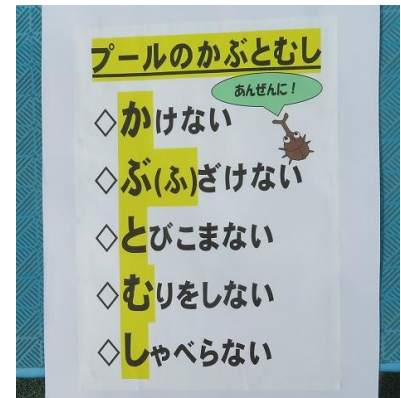 プールのかぶとむし
あんぜんに！
◇かけない
◇ぶ(ふ)ざけない
◇とびこまない
◇むりをしない
◇しゃべらない